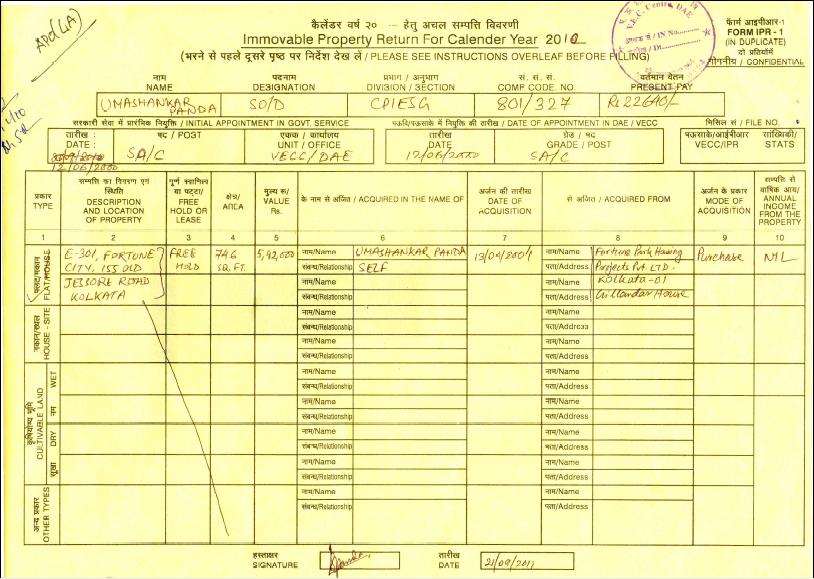 APO(LA)
कैलेंडर वर्ष २० --- हेतु अचल सम्पत्ति विवरणी
Immovable Property Return For Calender Year 2010
(भरने से पहले दूसरे पृष्ठ पर निर्देश देख लें / PLEASE SEE INSTRUCTIONS OVERLEAF BEFORE FILLING)
फॉर्म आइपीआर-1
FORM IPR - 1
(IN DUPLICATE)
दो प्रतियोंमें
गोपनीय / CONFIDENTIAL
नाम पदनाम प्रभाग / अनुभाग सं. सं. सं. वर्तमान वेतन
NAME DESIGNATION DIVISION / SECTION COMP. CODE NO. PRESENT PAY
UMASHANKAR PANDA SO/D CPIESG 801/327 Rs 22640/-
सरकारी सेवा में प्रारंभिक नियुक्ति / INITIAL APPOINTMENT IN GOVT. SERVICE पऊवि/वऊसाके में नियुक्ति की तारीख / DATE OF APPOINTMENT IN DAE / VECC मिसिल सं / FILE NO.
तारीख : पद / POST एकक / कार्यालय तारीख ग्रेड / पद पऊसाके/आईपीआर सांख्यिकी/
DATE : UNIT / OFFICE DATE GRADE / POST VECC/IPR STATS
12/06/2000 SA/C VECC/DAE 12/06/2000 SA/C
प्रकार सम्पत्ति का विवरण एवं स्थिति पूर्ण स्वामित्व या पट्टा/ क्षेत्र/ मूल्य रू/ के नाम से अर्जित / ACQUIRED IN THE NAME OF अर्जन की तारीख से अर्जित / ACQUIRED FROM अर्जन के प्रकार सम्पत्ति से वार्षिक आय/
TYPE DESCRIPTION AND LOCATION OF PROPERTY FREE HOLD OR LEASE AREA VALUE Rs. DATE OF ACQUISITION MODE OF ACQUISITION ANNUAL INCOME FROM THE PROPERTY
1 2 3 4 5 6 7 8 9 10
फ्लैट/मकान FLAT/HOUSE
E-301, FORTUNE FREE 746 5,92,000 नाम/Name UMASHANKAR PANDA नाम/Name Fortune Park Housing Purchase NIL
CITY, 155 OLD HOLD SQ. FT. संबन्ध/Relationship SELF पता/Address Projects Pvt. LTD.
JESSORE ROAD नाम/Name नाम/Name Kolkata-01
KOLKATA संबन्ध/Relationship पता/Address Gillandar House
मकान/स्थल HOUSE - SITE
नाम/Name नाम/Name
संबन्ध/Relationship पता/Address
नाम/Name नाम/Name
संबन्ध/Relationship पता/Address
कृषियोग्य भूमि CULTIVABLE LAND
नम WET
नाम/Name नाम/Name
संबन्ध/Relationship पता/Address
नाम/Name नाम/Name
संबन्ध/Relationship पता/Address
सूखा DRY
नाम/Name नाम/Name
संबन्ध/Relationship पता/Address
नाम/Name नाम/Name
संबन्ध/Relationship पता/Address
अन्य प्रकार OTHER TYPES
नाम/Name नाम/Name
संबन्ध/Relationship पता/Address
हस्ताक्षर तारीख
SIGNATURE DATE 21/09/2011